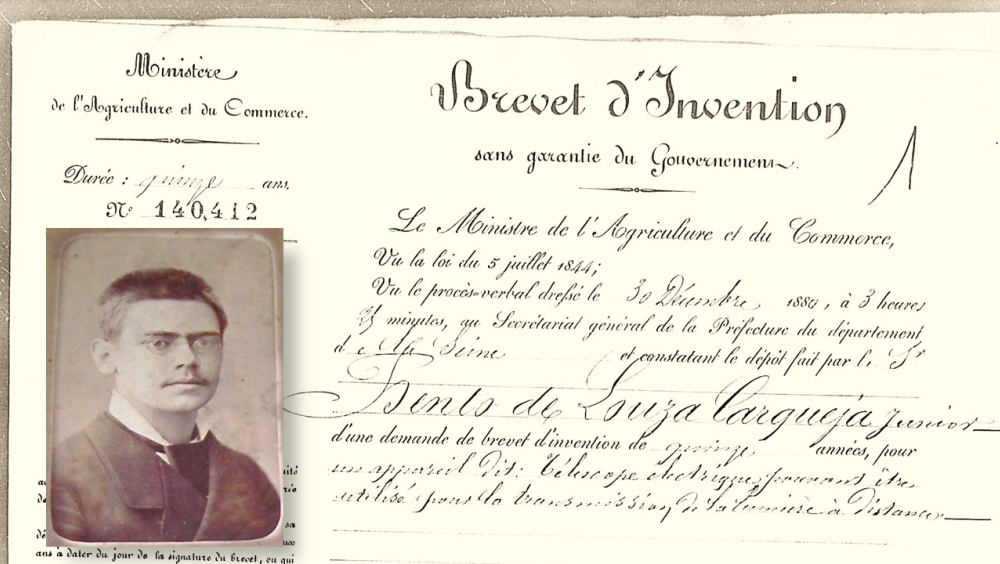 Ministère
de l'Agriculture et du Commerce.
Durée : quinze ans.
N° 140,412
Brevet d'Invention
sans garantie du Gouvernement.
Le Ministre de l'Agriculture et du Commerce,
Vu la loi du 5 juillet 1844;
Vu le procès-verbal dressé le 30 Décembre 1880, à 3 heures
minutes, au Secrétariat général de la Préfecture du département
de la Seine et constatant le dépôt fait par le Sr
Bento de Souza Carqueja Junior
d'une demande de brevet d'invention de quinze années, pour
un appareil dit: Télescope électrique pouvant être
utilisé pour la transmission de la lumière à distance
sa
ans à dater du jour de la signature du brevet, ou qui